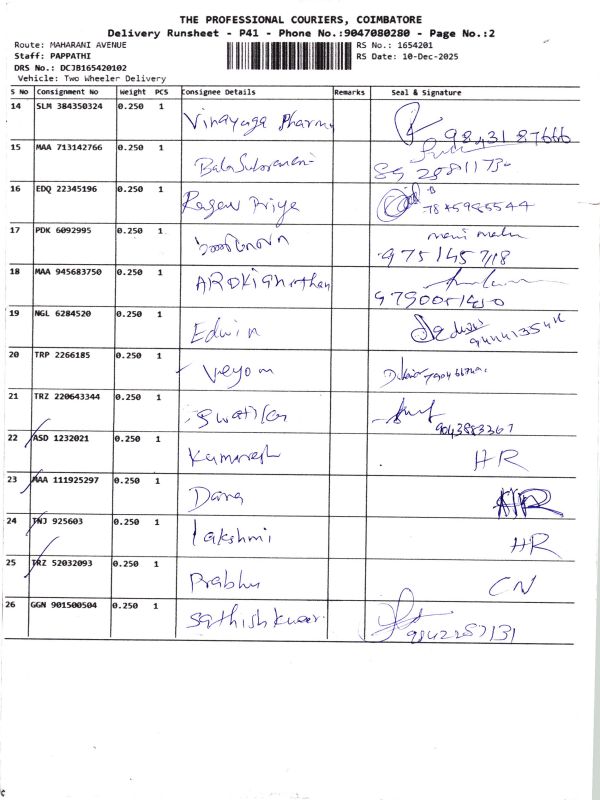 THE PROFESSIONAL COURIERS, COIMBATORE
Delivery Runsheet - P41 - Phone No.:9047080280 - Page No.:2
Route: MAHARANI AVENUE RS No.: 1654201
Staff: PAPPATHI RS Date: 10-Dec-2025
DRS No.: DCJB165420102
Vehicle: Two Wheeler Delivery
S No Consignment No Weight PCS Consignee Details Remarks Seal & Signature
14 SLM 384350324 0.250 1 Vinayaga Pharma 98431 87666
15 MAA 713142766 0.250 1 BalaSubramani
16 EDQ 22345196 0.250 1 Ragav Priya 7845985544
17 PDK 6092995 0.250 1 975145718
18 MAA 945683750 0.250 1 9790051450
19 NGL 6284520 0.250 1 Edwin Edwin
20 TRP 2266185 0.250 1 Veyom
21 TRZ 220643344 0.250 1 9043883367
22 ASD 1232021 0.250 1 Kamaresh HR
23 MAA 111925297 0.250 1 Dana HR
24 TNJ 925603 0.250 1 lakshmi HR
25 TRZ 52032093 0.250 1 Prabhu CN
26 GGN 901500504 0.250 1 Sathishkumar 9842257131